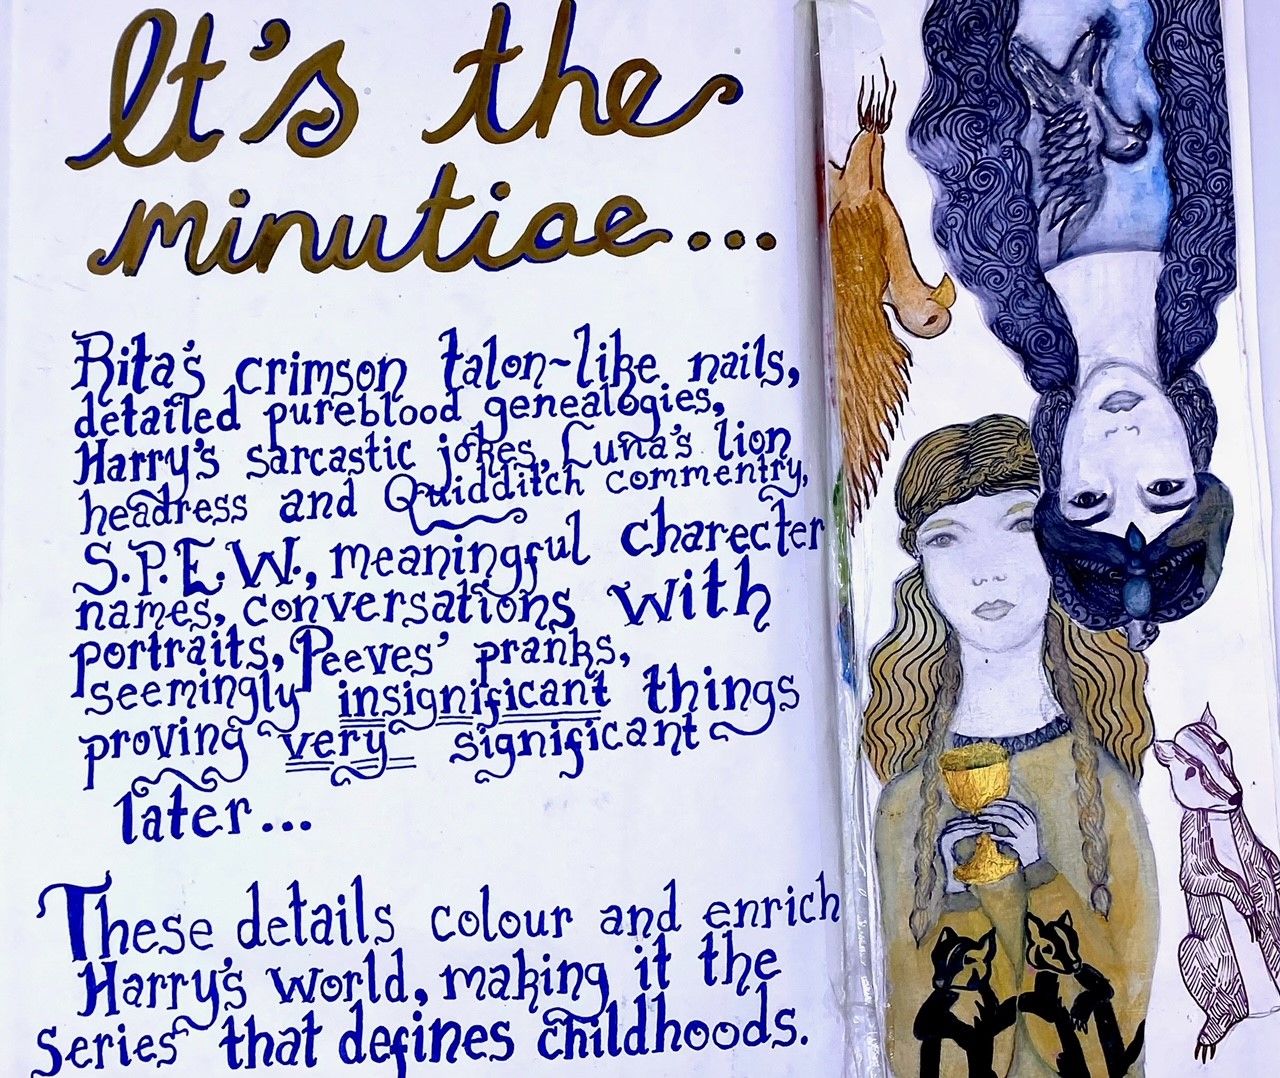 It's the
minutiae...
Rita's crimson talon-like nails,
detailed pureblood genealogies,
Harry's sarcastic jokes, Luna's lion
headress and Quidditch commentry,
S.P.E.W., meaningful charecter
names, conversations with
portraits, Peeves' pranks,
seemingly insignificant things
proving very significant
later...
These details colour and enrich
Harry's world, making it the
series that defines childhoods.